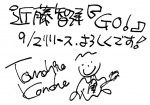 近藤智洋『GO!』
9/2リリース、よろしくです!
Tomohiro
Kondo